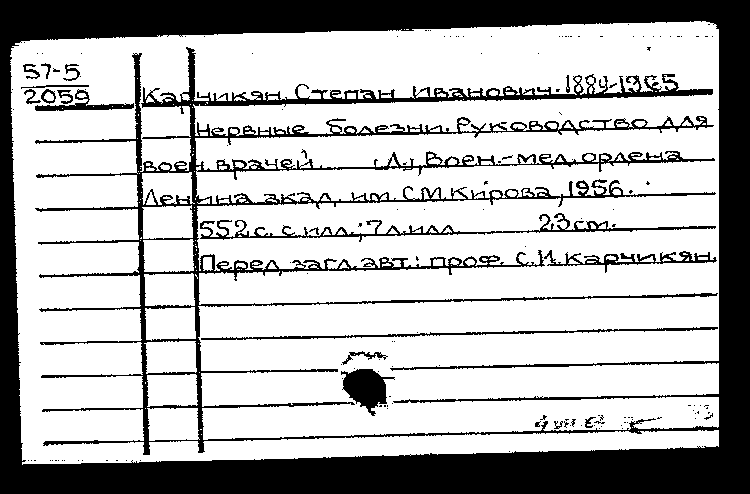 57-5
2059
Карчикян, Степан Иванович. 1889-1965
Нервные болезни. Руководство для
воен. врачей. [Л.], Воен.-мед. ордена
Ленина акад. им. С.М. Кирова, 1956.
552 с. с илл.; 7 л. илл. 23 cm.
Перед загл. авт.: проф. С.И. Карчикян.